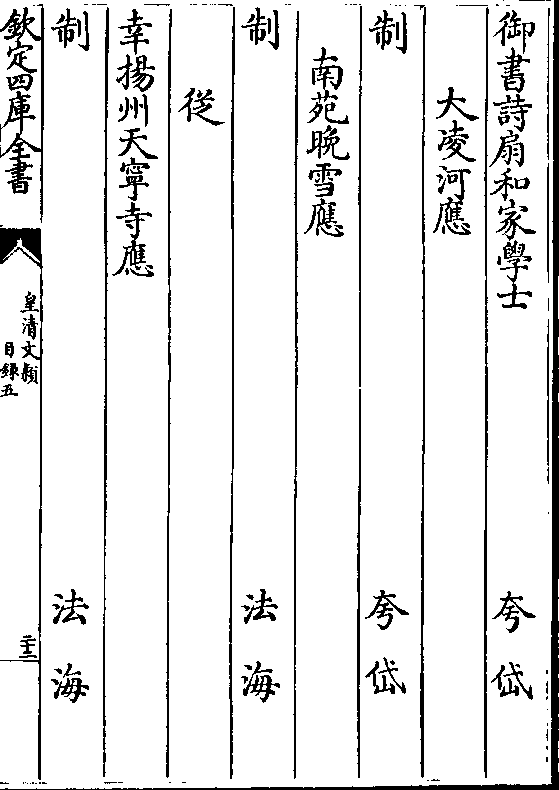 御書詩扇和家學士　夸岱
大凌河應
制　夸岱
南苑晚雪應
制　法海
從
幸揚州天寧寺應
制　法海
欽定四庫全書
皇清文穎
目録五
二十三